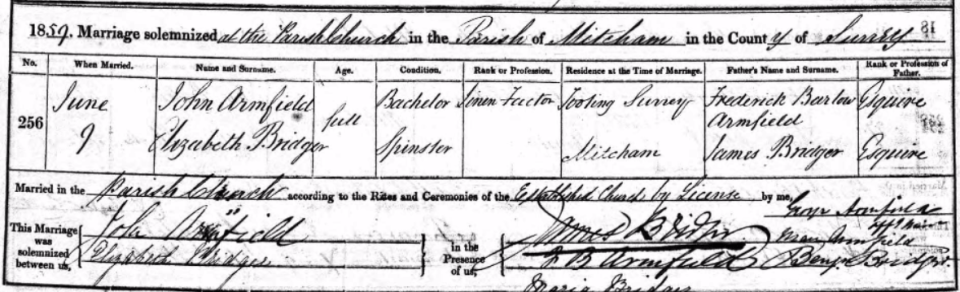 1859. Marriage solemnized at the Parish Church in the Parish of Mitcham in the County of Surrey
No. When Married. Name and Surname. Age. Condition. Rank or Profession. Residence at the Time of Marriage. Father's Name and Surname. Rank or Profession of Father.
256 June 9 John Armfield full Bachelor Linen Factor Tooting Surrey Frederick Barlow Armfield Esquire
Elizabeth Bridger Spinster Mitcham James Bridger Esquire
Married in the Parish Church according to the Rites and Ceremonies of the Established Church by License by me,
This Marriage was solemnized between us, John Armfield
Elizabeth Bridger
in the Presence of us, James Bridger
F B Armfield
Maria Bridger
Armfield
Benjn Bridger